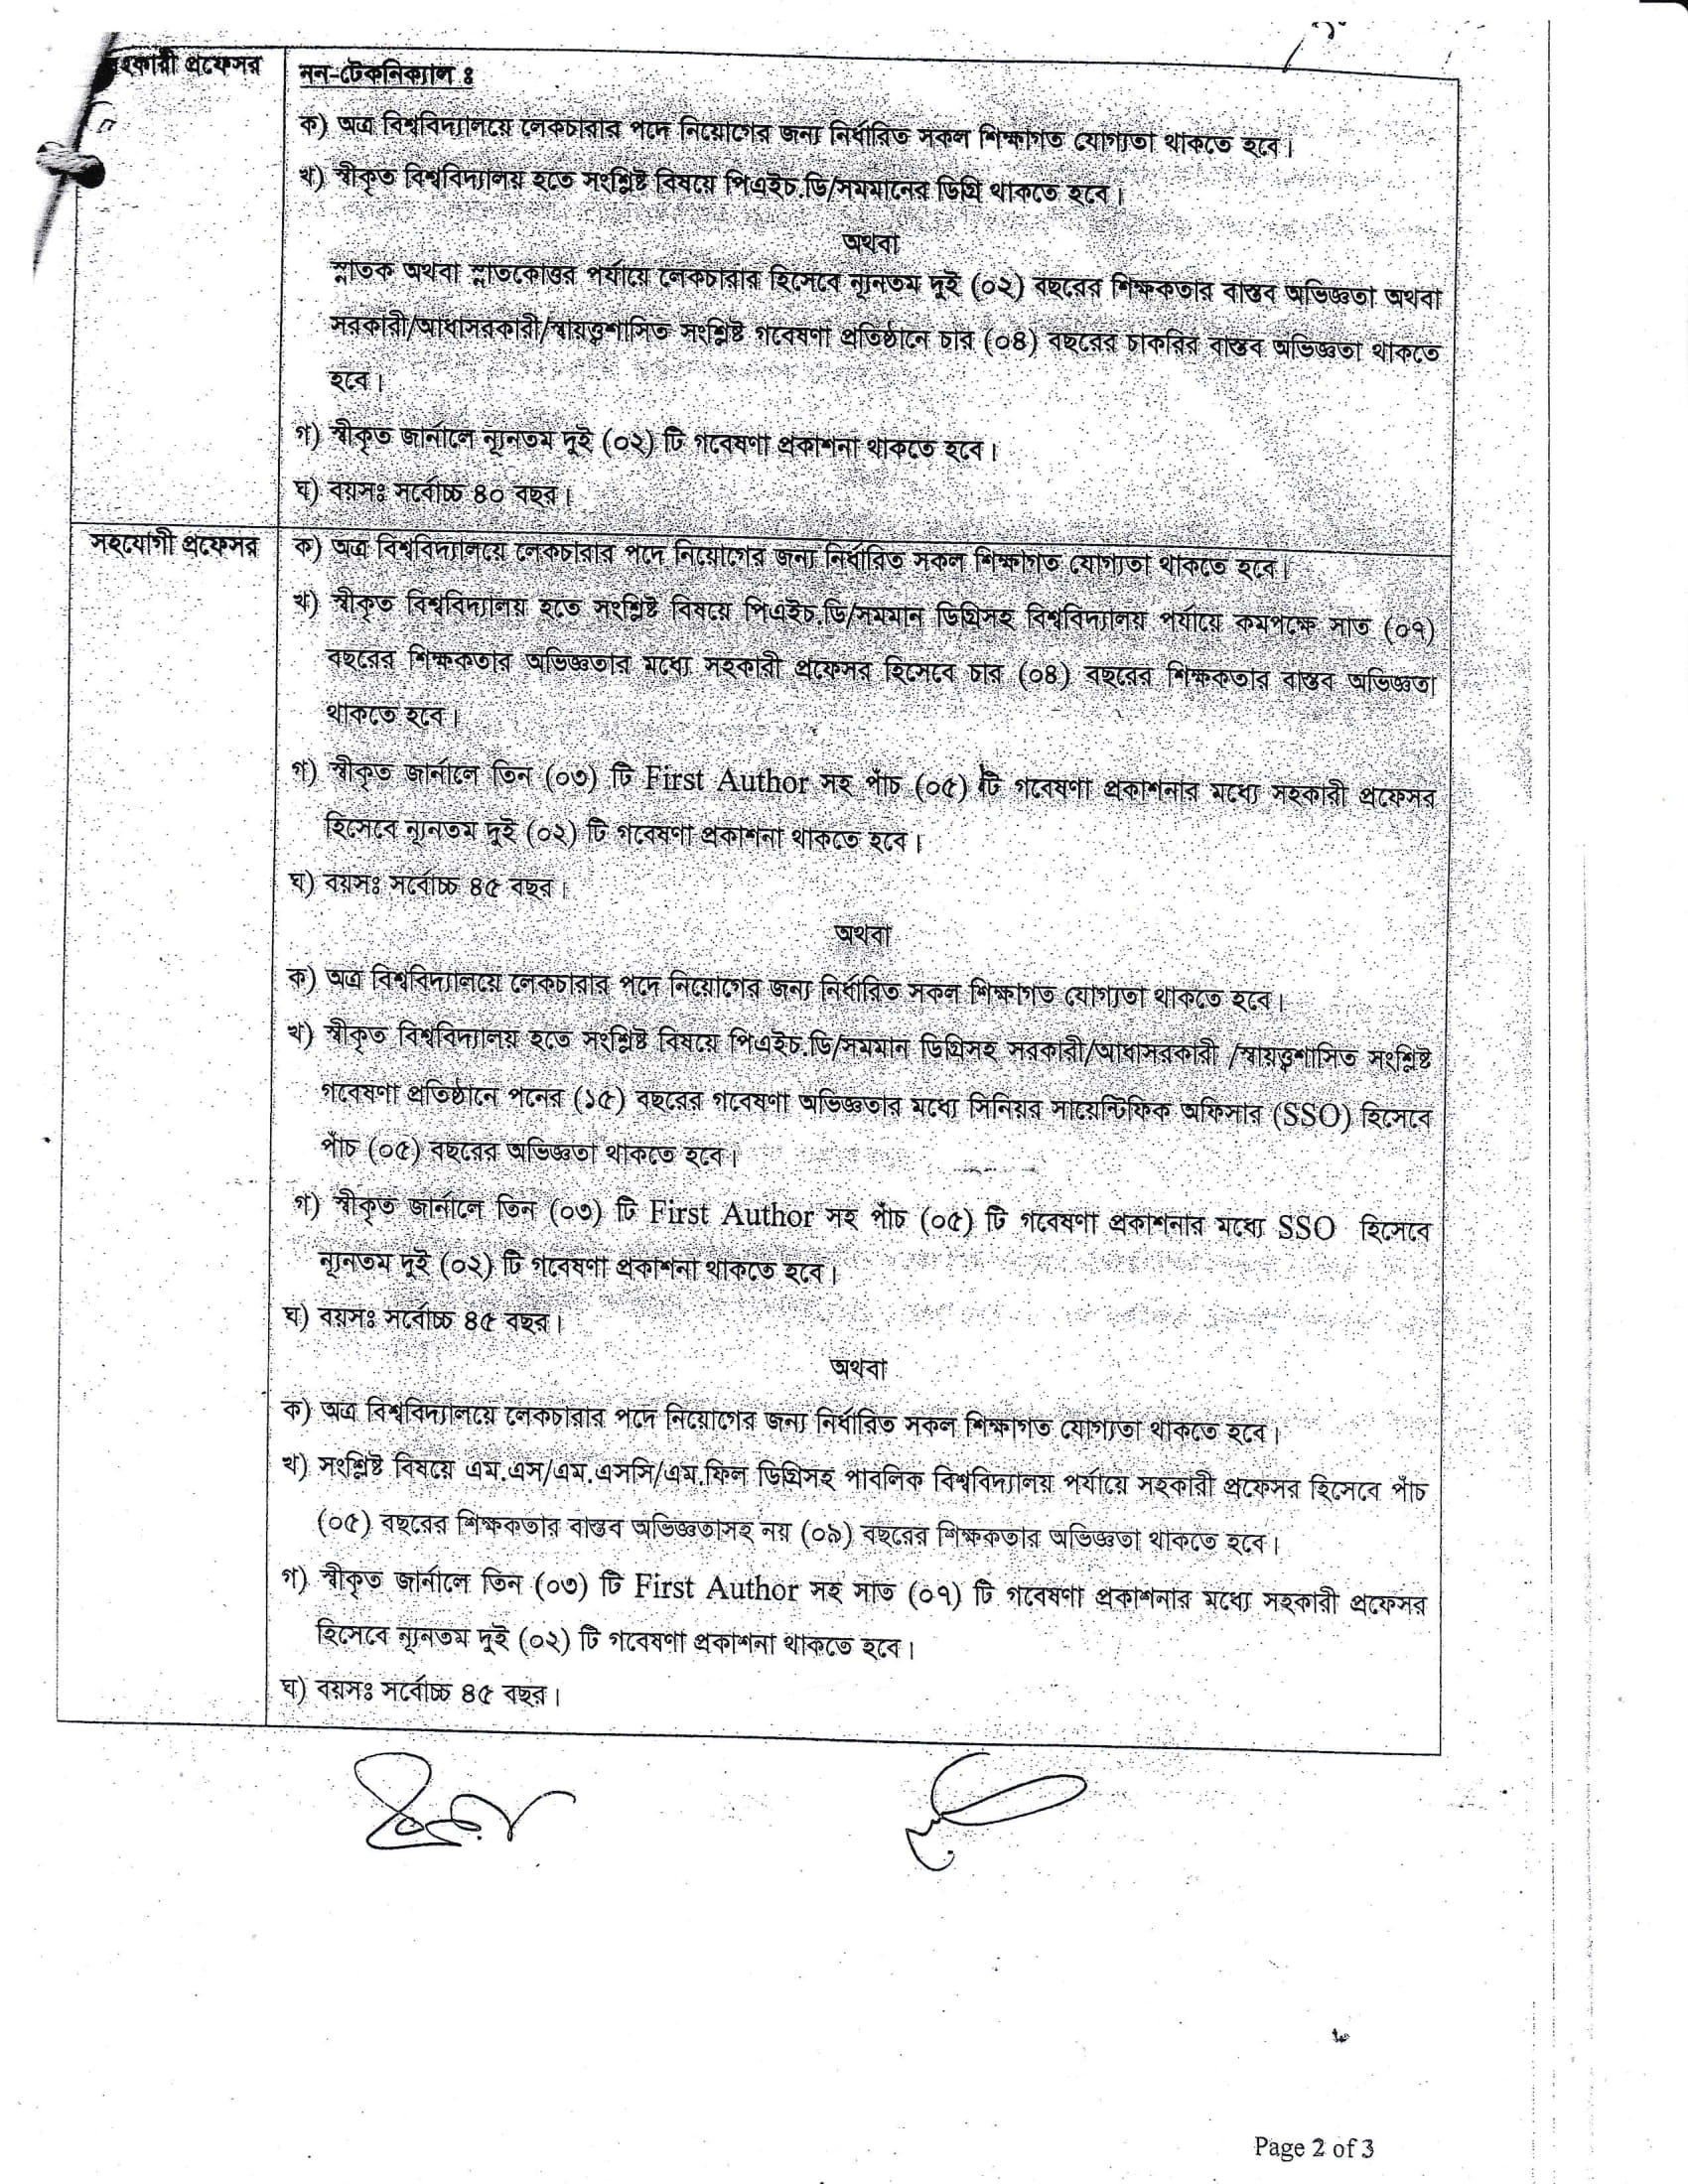 সহকারী প্রফেসর
নন-টেকনিক্যাল ঃ
ক) অত্র বিশ্ববিদ্যালয়ে লেকচারার পদে নিয়োগের জন্য নির্ধারিত সকল শিক্ষাগত যোগ্যতা থাকতে হবে।
খ) স্বীকৃত বিশ্ববিদ্যালয় হতে সংশ্লিষ্ট বিষয়ে পিএইচ.ডি/সমমানের ডিগ্রি থাকতে হবে।
অথবা
স্নাতক অথবা স্নাতকোত্তর পর্যায়ে লেকচারার হিসেবে ন্যূনতম দুই (০২) বছরের শিক্ষকতার বাস্তব অভিজ্ঞতা অথবা
সরকারী/আধাসরকারী/স্বায়ত্ত্বশাসিত সংশ্লিষ্ট গবেষণা প্রতিষ্ঠানে চার (০৪) বছরের চাকরির বাস্তব অভিজ্ঞতা থাকতে
হবে।
গ) স্বীকৃত জার্নালে ন্যূনতম দুই (০২) টি গবেষণা প্রকাশনা থাকতে হবে।
ঘ) বয়সঃ সর্বোচ্চ ৪০ বছর।
সহযোগী প্রফেসর
ক) অত্র বিশ্ববিদ্যালয়ে লেকচারার পদে নিয়োগের জন্য নির্ধারিত সকল শিক্ষাগত যোগ্যতা থাকতে হবে।
খ) স্বীকৃত বিশ্ববিদ্যালয় হতে সংশ্লিষ্ট বিষয়ে পিএইচ.ডি/সমমান ডিগ্রিসহ বিশ্ববিদ্যালয় পর্যায়ে কমপক্ষে সাত (০৭)
বছরের শিক্ষকতার অভিজ্ঞতার মধ্যে সহকারী প্রফেসর হিসেবে চার (০৪) বছরের শিক্ষকতার বাস্তব অভিজ্ঞতা
থাকতে হবে।
গ) স্বীকৃত জার্নালে তিন (০৩) টি First Author সহ পাঁচ (০৫) টি গবেষণা প্রকাশনার মধ্যে সহকারী প্রফেসর
হিসেবে ন্যূনতম দুই (০২) টি গবেষণা প্রকাশনা থাকতে হবে।
ঘ) বয়সঃ সর্বোচ্চ ৪৫ বছর।
অথবা
ক) অত্র বিশ্ববিদ্যালয়ে লেকচারার পদে নিয়োগের জন্য নির্ধারিত সকল শিক্ষাগত যোগ্যতা থাকতে হবে।
খ) স্বীকৃত বিশ্ববিদ্যালয় হতে সংশ্লিষ্ট বিষয়ে পিএইচ.ডি/সমমান ডিগ্রিসহ সরকারী/আধাসরকারী /স্বায়ত্ত্বশাসিত সংশ্লিষ্ট
গবেষণা প্রতিষ্ঠানে পনের (১৫) বছরের গবেষণা অভিজ্ঞতার মধ্যে সিনিয়র সায়েন্টিফিক অফিসার (SSO) হিসেবে
পাঁচ (০৫) বছরের অভিজ্ঞতা থাকতে হবে।
গ) স্বীকৃত জার্নালে তিন (০৩) টি First Author সহ পাঁচ (০৫) টি গবেষণা প্রকাশনার মধ্যে SSO হিসেবে
ন্যূনতম দুই (০২) টি গবেষণা প্রকাশনা থাকতে হবে।
ঘ) বয়সঃ সর্বোচ্চ ৪৫ বছর।
অথবা
ক) অত্র বিশ্ববিদ্যালয়ে লেকচারার পদে নিয়োগের জন্য নির্ধারিত সকল শিক্ষাগত যোগ্যতা থাকতে হবে।
খ) সংশ্লিষ্ট বিষয়ে এম.এস/এম.এসসি/এম.ফিল ডিগ্রিসহ পাবলিক বিশ্ববিদ্যালয় পর্যায়ে সহকারী প্রফেসর হিসেবে পাঁচ
(০৫) বছরের শিক্ষকতার বাস্তব অভিজ্ঞতাসহ নয় (০৯) বছরের শিক্ষকতার অভিজ্ঞতা থাকতে হবে।
গ) স্বীকৃত জার্নালে তিন (০৩) টি First Author সহ সাত (০৭) টি গবেষণা প্রকাশনার মধ্যে সহকারী প্রফেসর
হিসেবে ন্যূনতম দুই (০২) টি গবেষণা প্রকাশনা থাকতে হবে।
ঘ) বয়সঃ সর্বোচ্চ ৪৫ বছর।
Page 2 of 3